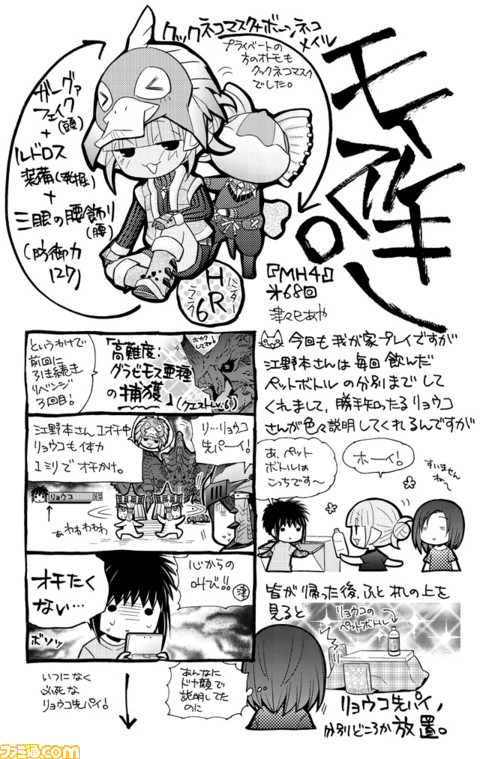 モイアルキー
『MH4』
オ68回
津々七あや
クックネコマスク+ボーンネコ
メイル
プライベートの
方のオトモも
クックネコマスク
でした。
ガーグァ
フェイク(頭)
+
ルドロス
装備
+
三眼の腰飾り
(腰)
(防御力
127)
HR
6
というわけで
前回に
引き続き
リベンジ
3回目!
「高難度:
グラビモス亜種
の捕獲」
(クエストLv.6)
江野本さん1オチ
リョウコも体力
1ミリでオチかけ。
リ…リョウコ
先パーイ!
リョウコ
あわわわわ
オチたく
ない…
ボソッ
心からの
叫び!!
いつになく
必死な
リョウコ先パイ!
今回も我が家プレイですが
江野本さんは毎回飲んだ
ペットボトルの分別までして
くれまして,勝手知ったるリョウコ
さんが色々説明してくれるんですが
あ、ペット
ボトルは
こっちです〜
ホーイ!
すいません
ね〜
皆が帰った後、ふとれの上を
見ると
リョウコの
ペットボトル
あんなに
ドヤ顔で
説明してた
のに
リョウコ先パイ,
分別どころか放置。
ファミ通.com